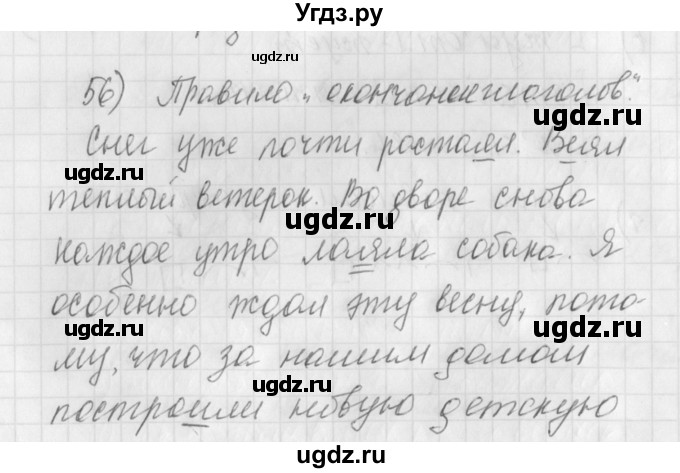 Угдз.ру
56) Правило „окончание глаголов."
ugdz.ru
Снег уже почти растаял. Веял
ugdz.ru ugdz.ru
теплый ветерок. Во дворе снова
ugdz.ru
каждое утро лаяла собака. Я
ugdz.ru
особенно ждал эту весну, пото-
ugdz.ru ugdz.ru
му, что за нашим домом
ugdz.ru
построили новую детскую
ugdz.ru ugdz.ru